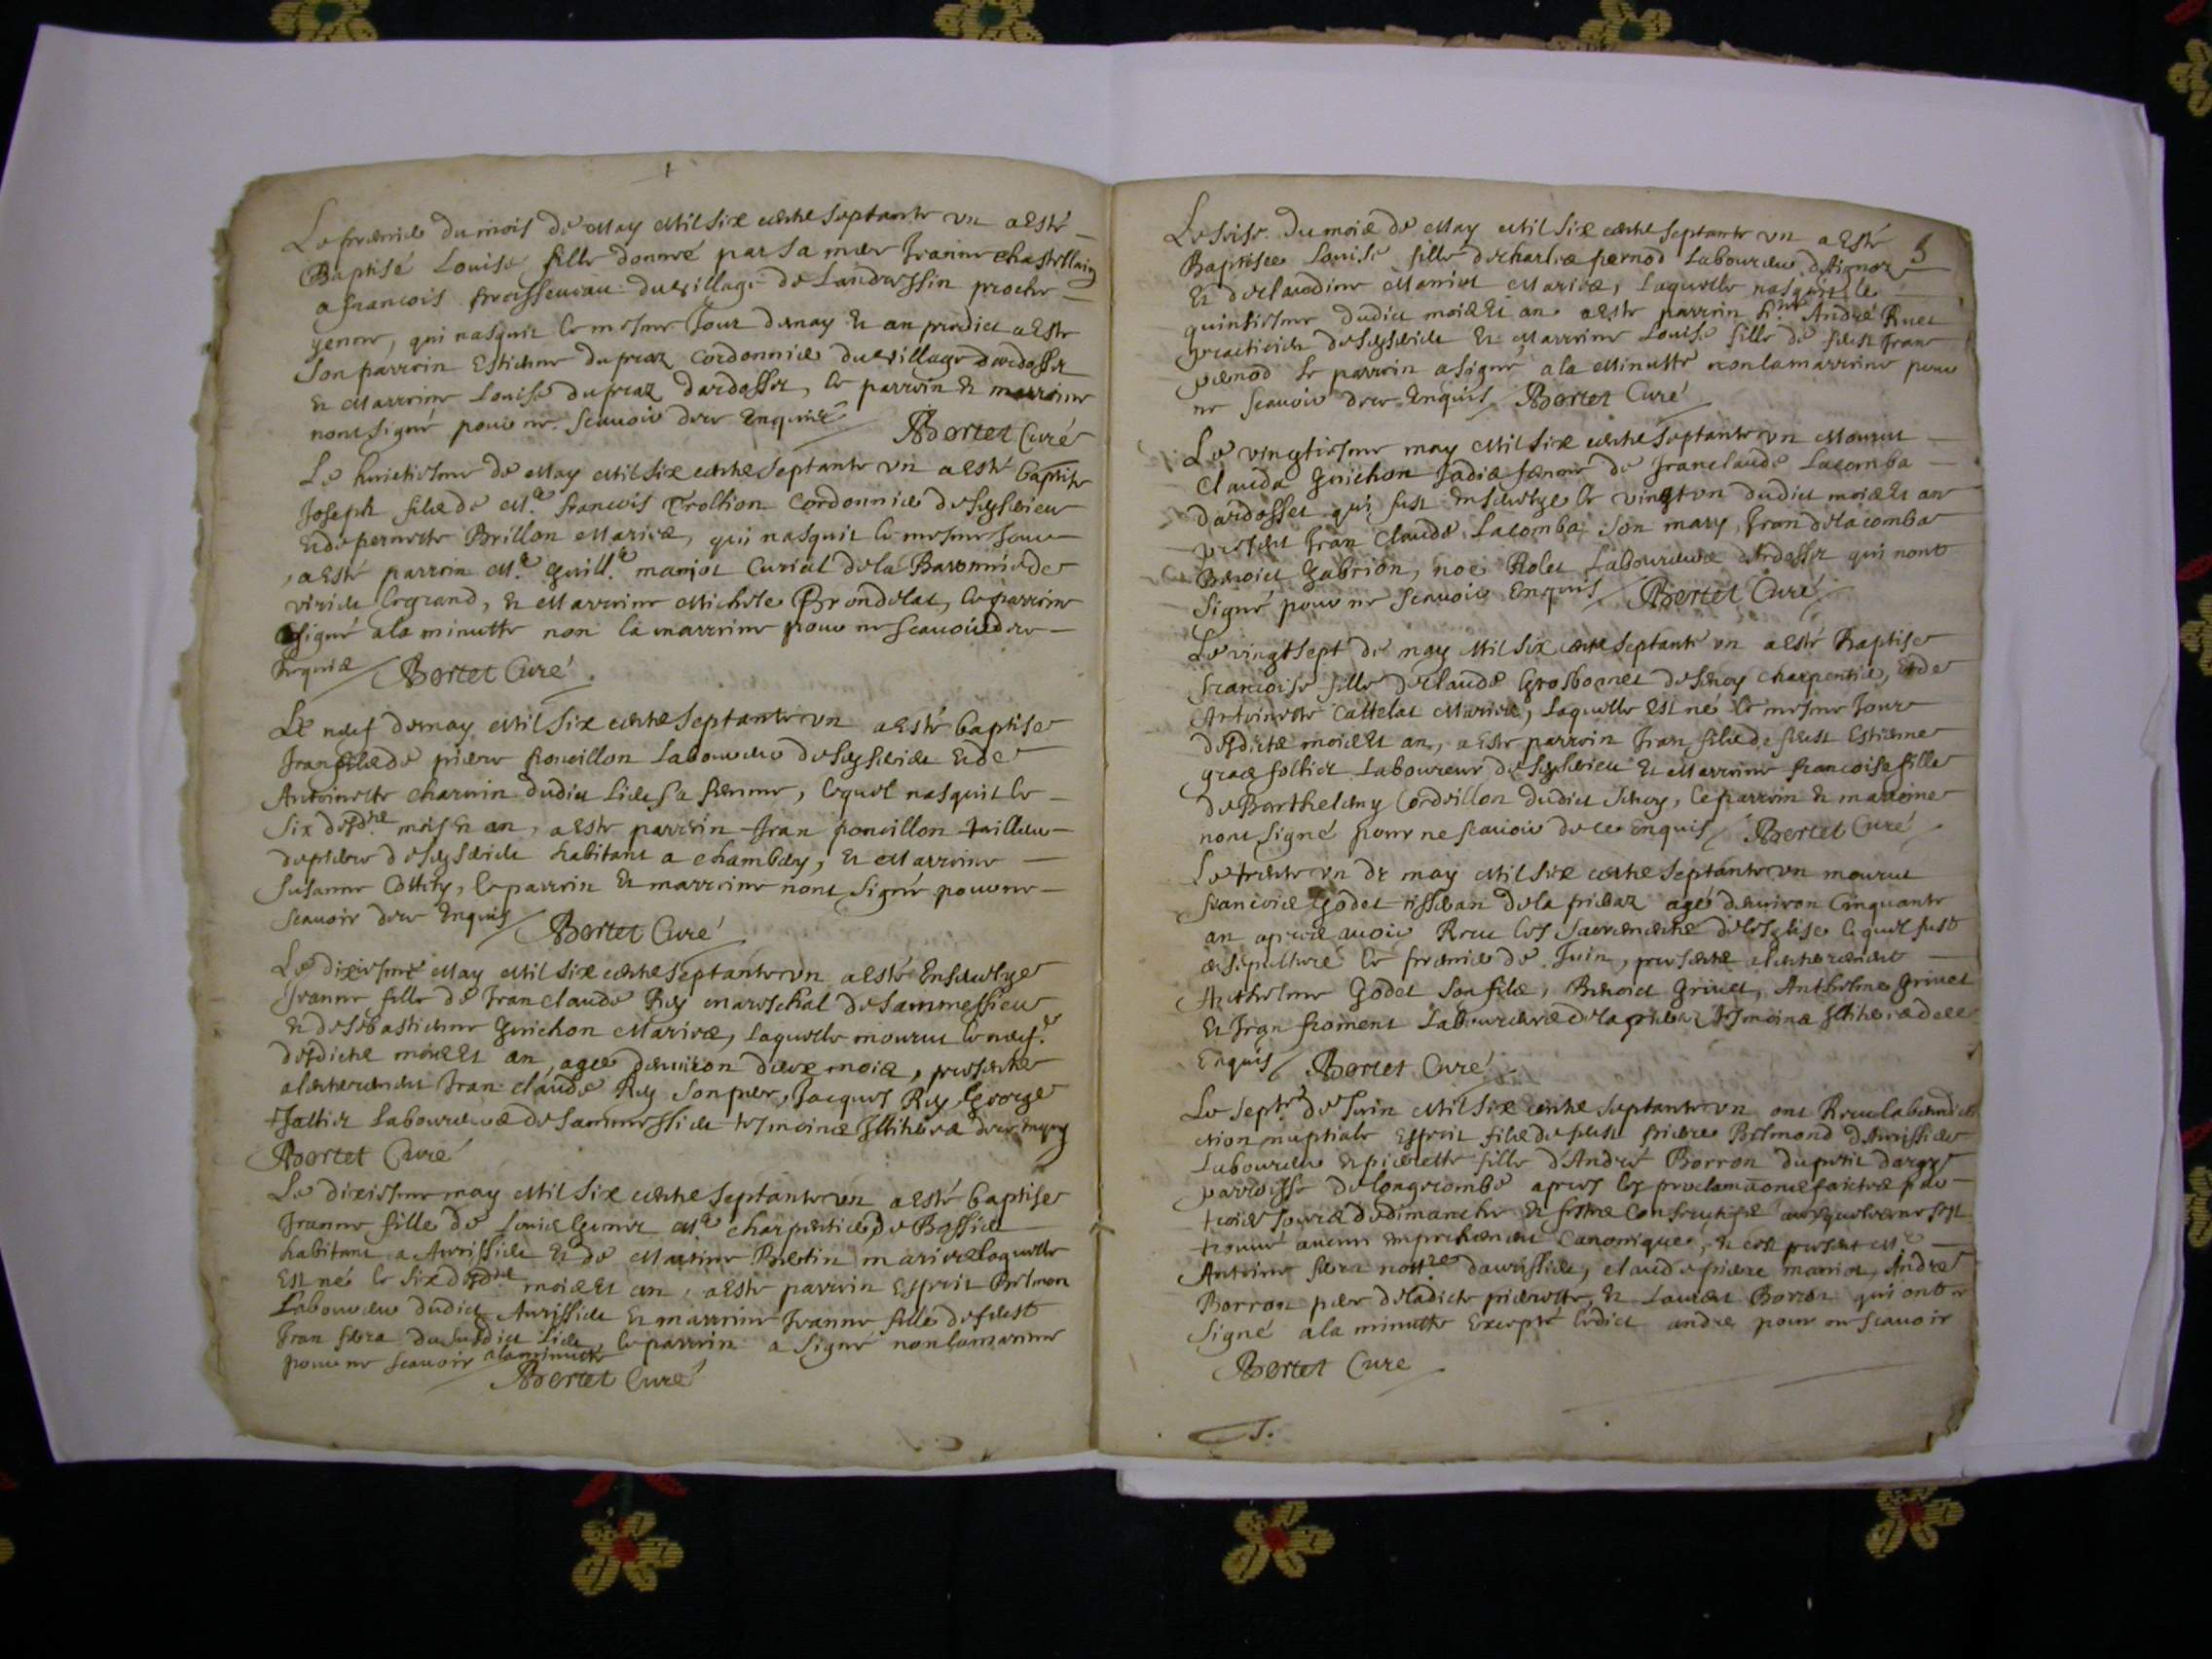 Le premier du mois de May Mil six cents septante un a esté
Baptisé Louise fille donnée par sa mere Jeanne chastellain
a francois du village de Landressin proche
yenne, qui nasquit le mesme Jour de may et an predict a esté
son parrein Estienne dupraz Cordonnier du village dardosset
et Marreine Louise dupraz dardosset, le parrein et marreine
nont signé pour ne scauoir de ce enquis Bortet Curé
Le huictiesme de May Mil six cents septante un a esté baptisé
Joseph fils de Mre. francois Trollion Cordonnier de Seyssieu
et de pernette Brillon Mariés, qui nasquit le mesme Jour
a esté parrein Mre. Guille. marjot Curial de la Baronnie de
virieu le grand, et Marreine Michele Brondelat, le parrein
a signé a la minutte non la marreine pour ne scauoir de ce
Enquis Bortet Curé
Le neuf de may Mil six cents septante un a esté baptisé
Jean fils de pierre ponsillon Laboureur de Seyssieu et de
Antoinette charuin dudict Lieu sa femme, lequel nasquit le
six desdts mois et an, a esté parrein Jean poncillon tailleur
de pierre de Seyssieu habitant a chambery, et Marreine
Susanne Cottity, le parrein et marreine nont signé pour ne
scauoir de ce Enquis Bortet Curé
Le dixiesme May Mil six cents septante un a esté Ensevelye
Jeanne fille de Jean claude Rey mareschal de sammessieu
et de sebastienne Guichon Mariés, laquelle mourut le neuf
desdicts mois et an, agée denuiron deux mois, presents
a lenterement Jean claude Rey son pere, Jacques Rey George
Jallier Laboureurs de sammessieu tesmoins Illiterés de ce enquis
Bortet Curé
Le dixiesme may Mil six cents septante un a esté baptisé
Jeanne fille de Louis Genix Mre. charpentier de Bossieu
habitant a Aurissieu et de Martine Bertin mariés laquelle
est né le six desdts mois et an, a esté parrein Esprit Belmon
Laboureur dudict Aurissieu et marreine Jeanne fille de feust
Jean fera du susdict Lieu, le parrein a signé a la minutte non la marreine
pour ne scauoir Bortet Curé
3
Le seise du mois de May Mil six cents septante un a esté
Baptisée Louise fille de charles pernod Laboureur dAignoz
et de claudine Marriot Mariés, laquelle nasquit le
quinsiesme dudict mois et an a esté parrein André Ruet
practicien de Seyssieu et Marreine Louise fille de feust Jean
pernod le parrein a signé a la Minutte non la marreine pour
ne scauoir de ce Enquis Bortet Curé
Le vingtiesme may Mil six cents septante un Mourut
Clauda Guichon Jadis femme de Jean claude Lacomba
dardosset qui fust Enseuelye le vingt un dudict mois et an
presents Jean Claude Lacomba son mary, Jean de lacomba
Benoict Gabrion, noe Rolet Laboureurs dArdosset qui nont
signé pour ne scauoir Enquis Bortet Curé
Le vingt sept de may Mil six cents septante un a esté Baptisé
francoise fille de claude Grosbornet de Scey charpentier, et de
Antoinette Cattelat Mariés, laquelle est né le mesme Jour
desdicts mois et an, a esté parrein Jean fils de feust Estienne
gras sollier Laboureur de Seyssieu et Marreine francoise fille
de Barthelemy Cordeillon dudict Scey, le parrein et marreine
nont signé pour ne scauoir de ce enquis Bortet Curé
Le trente un de may Mil six cents septante un mourut
francois Godet tisseran de la agé denuiron Cinquante
an apres auoir Receu les sacrements de lesglise lequel fust
ensepulturé le premier de Juin, presents a lenterement
Anthelme Godet son fils, Benoict Grinet, Anthelme Grinet
et Jean froment Laboureurs de la tesmoins Illiterés de ce
Enquis Bortet Curé
Le sept de Juin Mil six cents septante un ont Receu la benedi
ction nuptiale Esprit fils de feust pierre Belmond dAurissieu
Laboureur et pierrette fille dAndré Borron du petit dargis
parroisse de longecombe apres les proclamaons faictes par
trois Jours de dimanche et festes Consecutifs ausquels ne sest
trouué aucun empechement Canonique, et ont present Mre.
Antoine fera nottre daurissieu, claude pierre marriot, André
Borron pere de ladicte pierrette, et Laurent Borron qui ont
signé a la minutte Excepté ledict andré pour ne scauoir
Bortet Curé